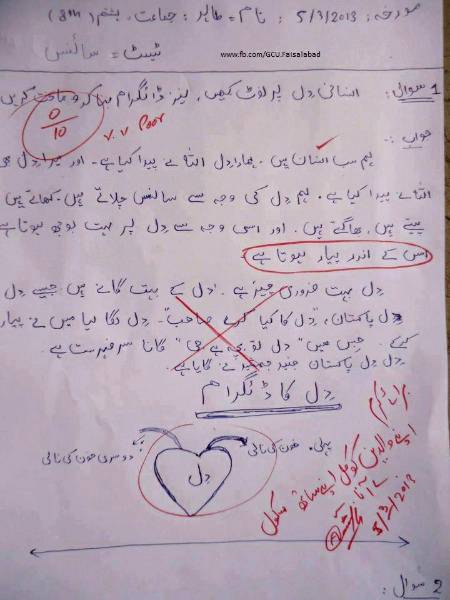 مورخہ: 5/3/2013 نام = طاہر: جماعت، ہشتم (8th):
www.fb.com/GCU.Faisalabad
ٹیسٹ = سائنس
سوال 1: انسانی دل پر نوٹ لکھیں، نیز ڈائگرام بنا کر وضاحت کریں
0/10
v.v Poor
جواب:
ہم سب انسان ہیں۔ ہمارا دل اللہ نے پیدا کیا ہے۔ اور میرا دل بھی
اللہ نے پیدا کیا ہے۔ ہم دل کی وجہ سے سانس چلاتے ہیں۔ کھاتے ہیں
پیتے ہیں، بھاگتے ہیں۔ اور اسی وجہ سے دل پر بہت بوجھ ہوتا ہے
اس کے اندر پیار ہوتا ہے۔
دل بہت ضروری چیز ہے۔ دل کے بہت گانے ہیں جیسے دل
دل پاکستان، "دل کا کیا کرے صاحب"۔ دل لگا لیا میں نے پیار
کرکے۔ جس میں "دل تو بچہ ہے جی" گانا سرفہرست ہے۔
دل دل پاکستان جنید جمشید نے گایا ہے۔
دل کا ڈائگرام
پہلی خون کی نالی
دوسری خون کی نالی
دل
اپنے والدین کو کل اپنے ساتھ سکول
لے آنا
5/3/2013
سوال 2: